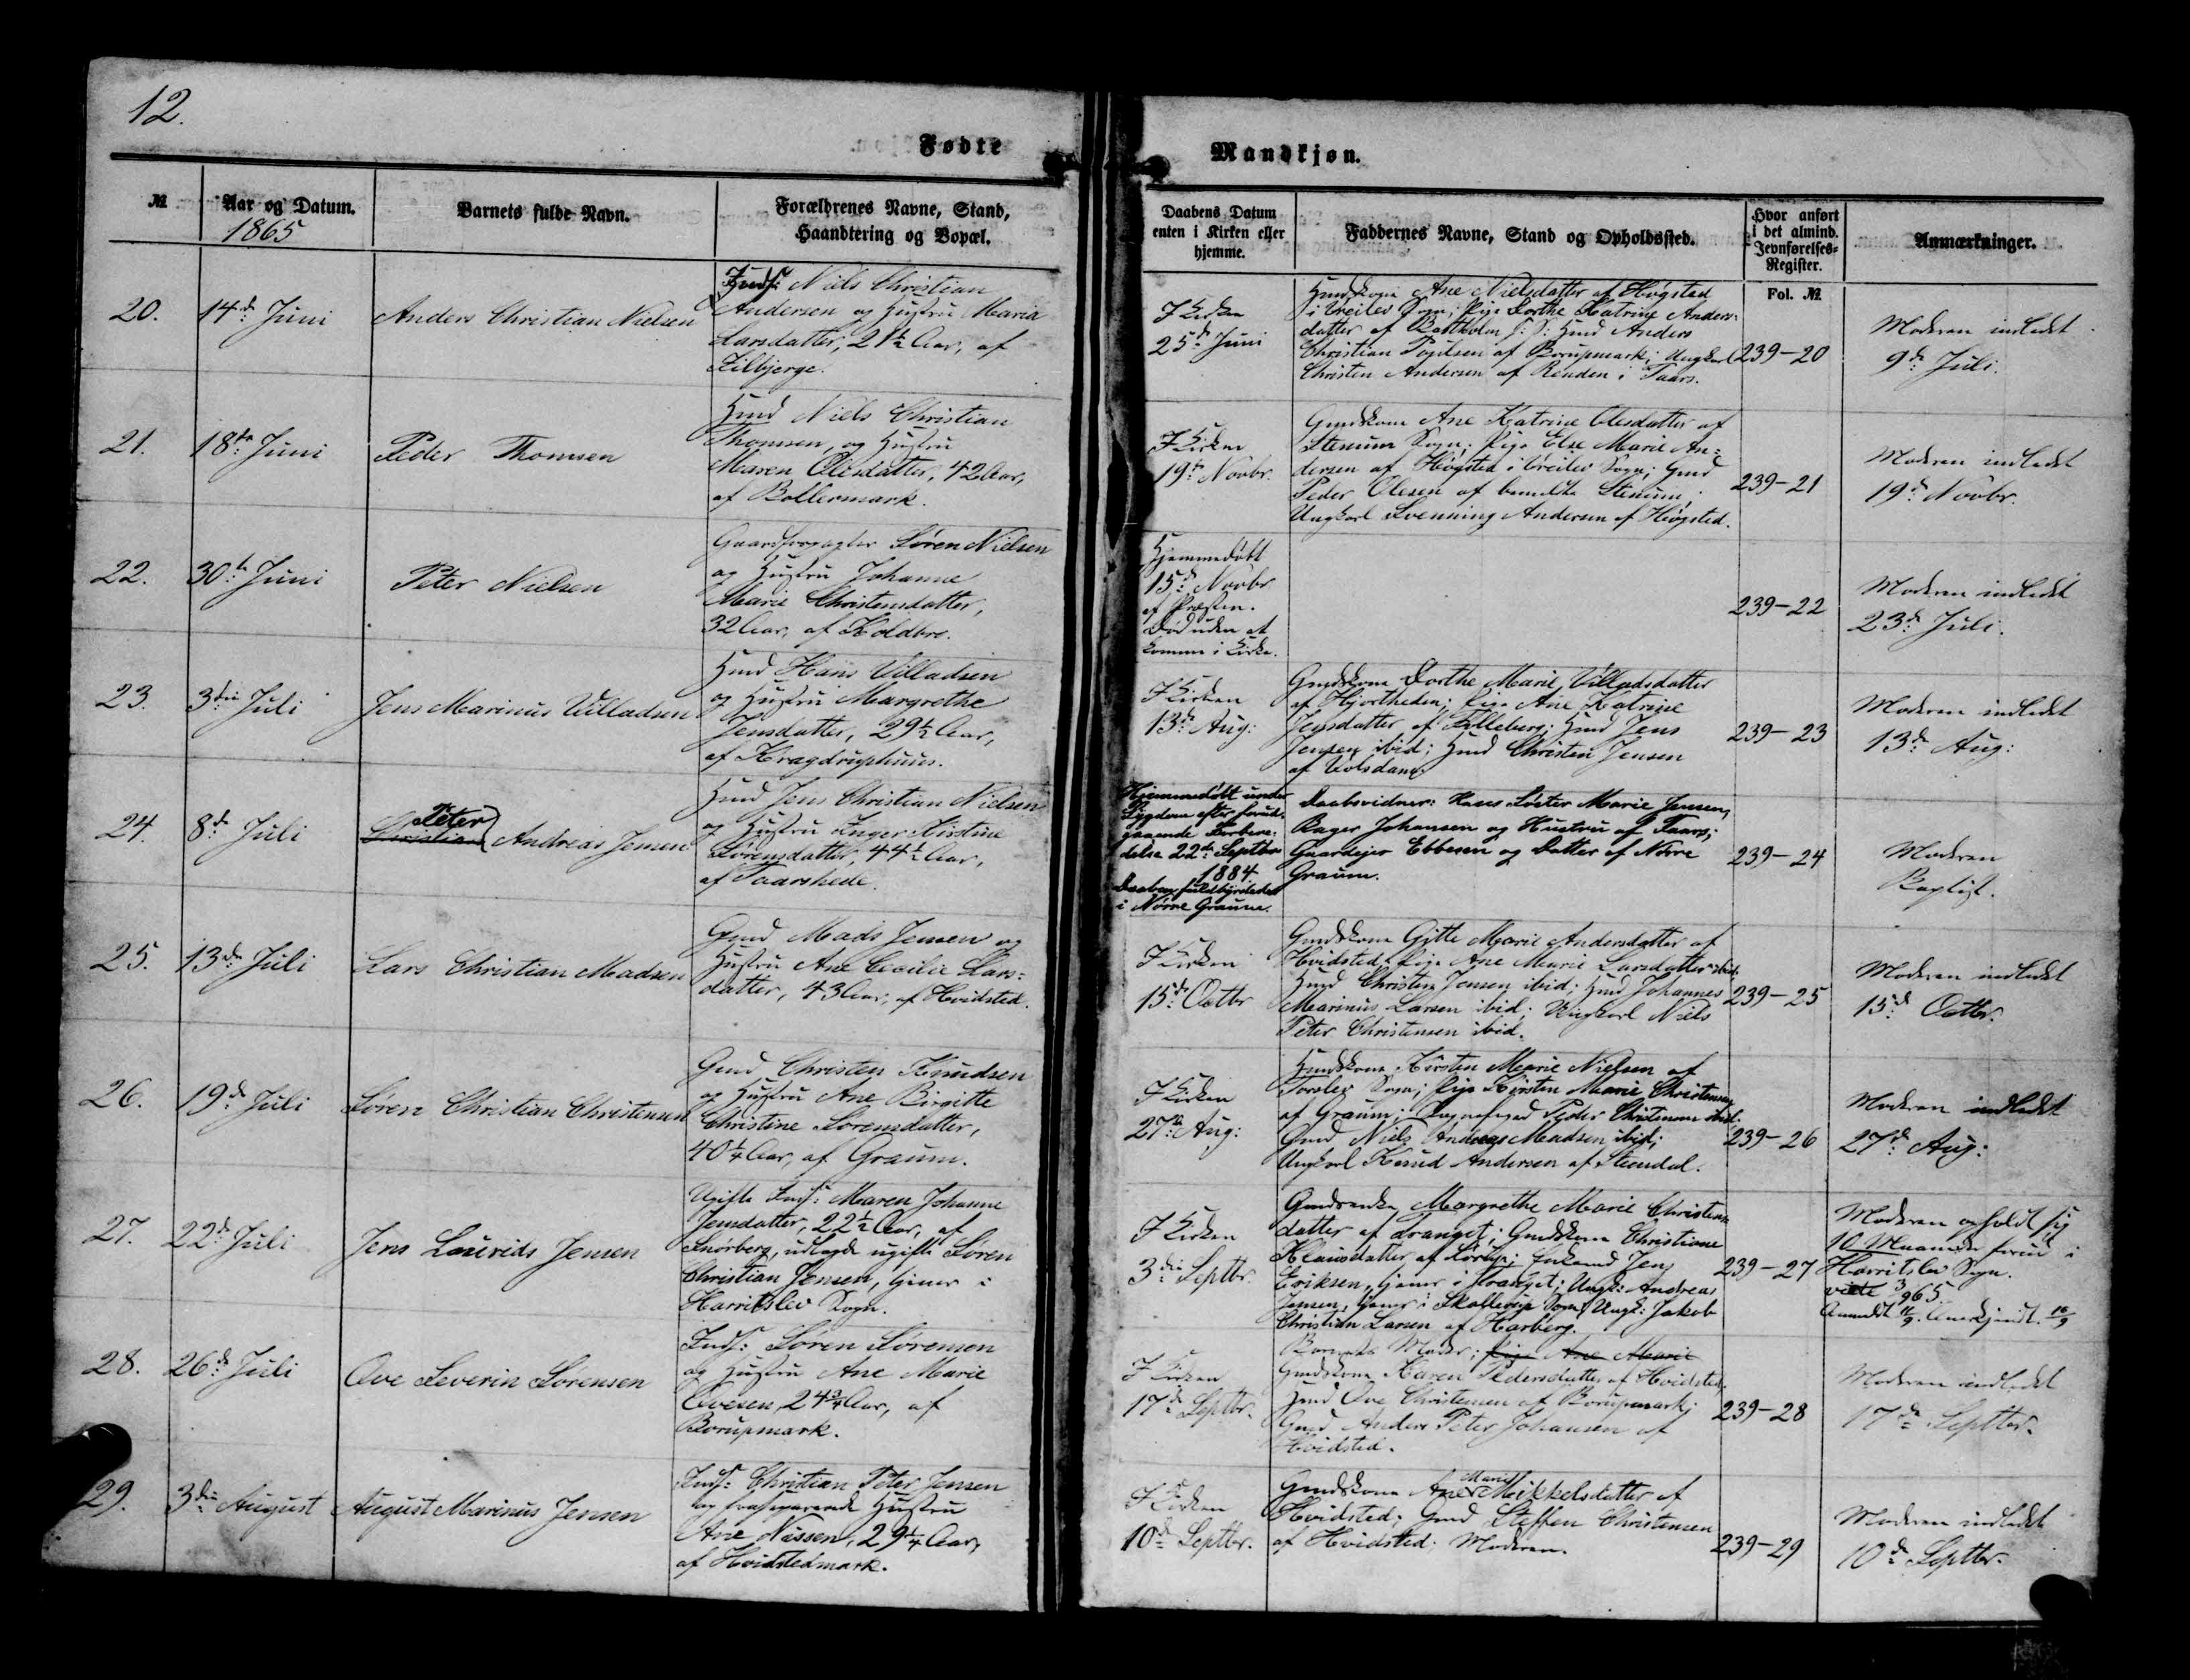 12.
Fødte
Mandkjøn.
№
Aar og Datum.
1865
Barnets fulde Navn.
Forældrenes Navne, Stand,
Haandtering og Bopæl.
Daabens Datum
enten i Kirken eller
hjemme.
Faddernes Navne, Stand og Opholdssted.
Hvor anført
i det almind.
Jevnførelses-
Register.
Fol. №
Anmærkninger.
20.
14de Juni
Anders Christian Nielsen
Inds: Niels Christian
Andersen og Hustru Maria
Larsdatter, 21½ Aar, af
Filbjerge.
I Kirken
25de Juni
Huusmkone Ane Nielsdatter af Høgsted
i Vreilev Sogn; Pige Dorthe Katrine Anders-
datter af
Christian Poulsen af Borupmark; Ungkarl
Christen Andersen af Renden i Taars.
239-20
Moderen indledt
9de Juli.
21.
18de Juni
Peder Thomsen
Hmd Niels Christian
Thomsen, og Hustru
Maren Olesdatter, 42 Aar,
af Bollermark.
I Kirken
19de Novbr.
Gmdkone Ane Katrine Olesdatter af
Stenum Sogn; Pige Else Marie An-
dersen af Høgsted i Vreilev Sogn; Gmd
Peder Olesen af bemeldte Stenum;
Ungkarl Svenning Andersen af Høgsted.
239-21
Moderen indledt
19de Novbr.
22.
30te Juni
Peter Nielsen
Gaardforpagter Søren Nielsen
og Hustru Johanne
Marie Christensdatter,
32 Aar, af Koldbro.
Hjemmedøbt
15de Novbr
af Præsten.
Død uden at
komme i Kirke.
239-22
Moderen indledt
23de Juli.
23.
3die Juli
Jens Marinus Villadsen
Hmd Hans Villadsen
og Hustru Margrethe
Jensdatter, 29½ Aar,
af Kragdruphuus.
I Kirken
13de Aug:
Gmdkone Dorthe Marie Villadsdatter
af Hjortheden; Pige Ane Katrine
Jensdatter af Filleberg; Hmd Jens
Jensen ibid; Hmd Christen Jensen
af Volsdam.
239-23
Moderen indledt
13de Aug:
24.
8de Juli
Peter
Christian Andreas Jensen
Hmd Jens Christian Nielsen
og Hustru Inger Kirstine
Sørensdatter, 44½ Aar,
af Taarshede.
Hjemmedøbt under
Sygdom efter forud-
gaaende Forbere-
delse 22de Septbr
1884.
Daaben fuldbyrdedes
i Nørre Graum.
Daabsvidner: Hans Søster Marie Jensen,
Bager Johansen og Hustru af Taars;
Gaardejer Ebbesen og Datter af Nørre
Graum.
239-24
Moderen
Baptist.
25.
13de Juli
Lars Christian Madsen
Gmd Mads Jensen og
Hustru Ane Cecilie Lars-
datter, 43 Aar, af Hvidsted.
I Kirken
15de Octbr
Gmdkone Gytte Marie Andersdatter af
Hvidsted; Pige Ane Marie Larsdatter ibid;
Hmd Christen Jensen ibid; Hmd Johannes
Marinus Larsen ibid; Ungkarl Niels
Peter Christensen ibid.
239-25
Moderen indledt
15de Octbr.
26.
19de Juli
Søren Christian Christensen
Gmd Christen Knudsen
og Hustru Ane Birgitte
Christine Sørensdatter,
40¼ Aar, af Graum.
I Kirken
27de Aug:
Hmdkone Kirsten Marie Nielsen af
Torslev Sogn; Pige Kirsten Marie Christensen
af Graum; Sognefoged Peder Christensen ibid;
Gmd Niels Andreas Madsen ibid;
Ungkarl Knud Andersen af Steendal.
239-26
Moderen indledt
27de Aug:
27.
22de Juli
Jens Laurids Jensen
Ugifte Inds: Maren Johanne
Jensdatter, 22½ Aar, af
Snørberg, udlagde ugifte Søren
Christian Jensen, tjener i
Harritslev Sogn.
I Kirken
3die Septbr.
Gmdenke Margrethe Marie Christens-
datter af Dranget; Gmdkone Christiane
Klausdatter af Lørup; Enkemd Jens
Eriksen, tjener i Dranget; Ungk: Andreas
Jensen, tjener i Skallerup Sogn; Ungk: Jakob
Christian Larsen af Harberg.
239-27
Moderen opholdt sig
10 Maaneder forud i
Harritslev Sogn.
Anmeldt 11/9. Anerkjendt. 16/9
28.
26de Juli
Ove Severin Sørensen
Inds: Søren Sørensen
og Hustru Ane Marie
Ovesen, 24¾ Aar, af
Borupmark.
I Kirken
17de Septbr.
Barnets Moder; Pige Ane Marie
Gmdkone Karen Pedersdatter af Hvidsted;
Hmd Ove Christensen af Borupmark;
Gmd Anders Peter Johansen af
Hvidsted.
239-28
Moderen indledt
17de Septbr.
29.
3die August
August Marinus Jensen
Inds: Christian Peter Jensen
og fraseparerede Hustru
Ane Nissen, 29¼ Aar,
af Hvidstedmark.
I Kirken
10de Septbr.
Gmdkone Ane Marie Mikkelsdatter af
Hvidsted; Gmd Steffen Christensen
af Hvidsted; Moderen.
239-29
Moderen indledt
10de Septbr.